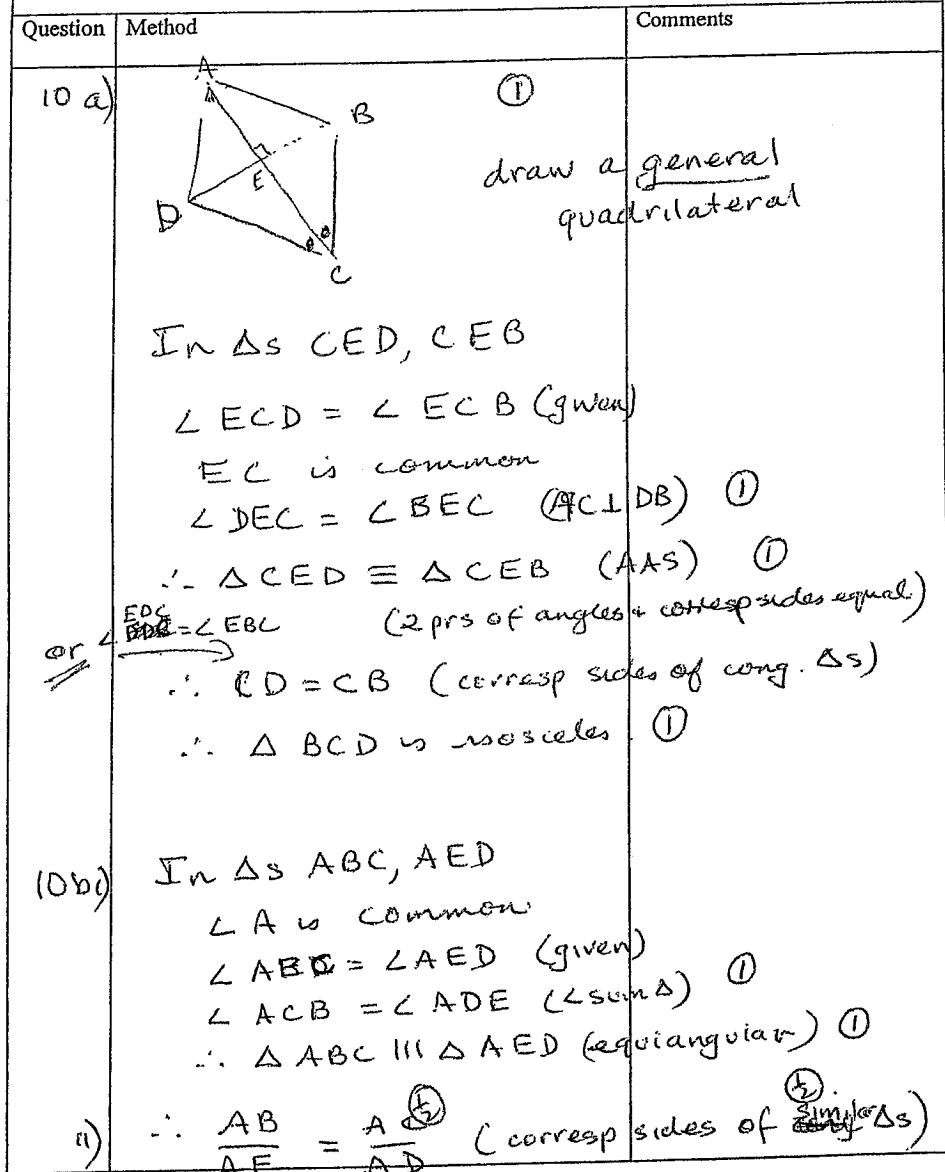 Question Method Comments
10 a)
A
B
①
E
D
C
draw a general
quadrilateral
In Δs CED, CEB
∠ ECD = ∠ ECB (given)
EC is common
∠ DEC = ∠ BEC (AC⊥DB) ①
∴ Δ CED ≡ Δ CEB (AAS) ①
or ∠ EDC = ∠ EBC (2 prs of angles + corresp sides equal)
∴ CD = CB (corresp sides of cong. Δs)
∴ Δ BCD is isosceles. ①
10bi) In Δs ABC, AED
∠ A is common
∠ ABC = ∠ AED (given)
∠ ACB = ∠ ADE (∠ sum Δ) ①
∴ Δ ABC ||| Δ AED (equiangular) ①
ii) ∴ AB/AE = AC/AD ½ (corresp sides of similar Δs) ½